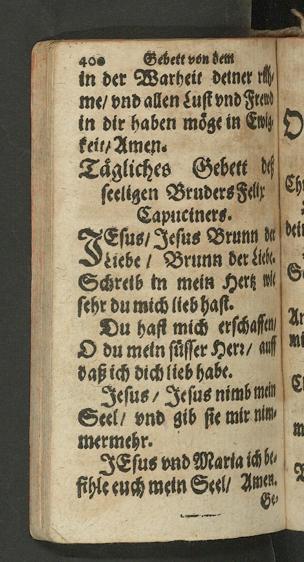 400 Gebett von dem
in der Warheit deiner rüh-
me/ vnd allen Lust vnd Frewd
in dir haben möge in Ewig-
keit/ Amen.
Tägliches Gebett deß
seeligen Bruders Felix
Capuciners.
JEsus/ Jesus Brunn der
Liebe/ Brunn der Liebe.
Schreib in mein Hertz wie
sehr du mich lieb hast.
Du hast mich erschaffen/
O du mein süsser Herr/ auff
daß ich dich lieb habe.
Jesus/ Jesus nimb mein
Seel/ vnd gib sie mir nim-
mermehr.
JEsus vnd Maria ich be-
fihle euch mein Seel/ Amen.
Ge-